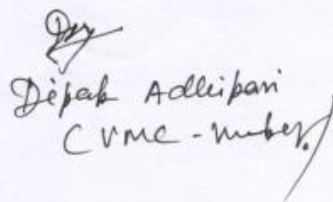 Dipak Adhikari
CVMC - Member.